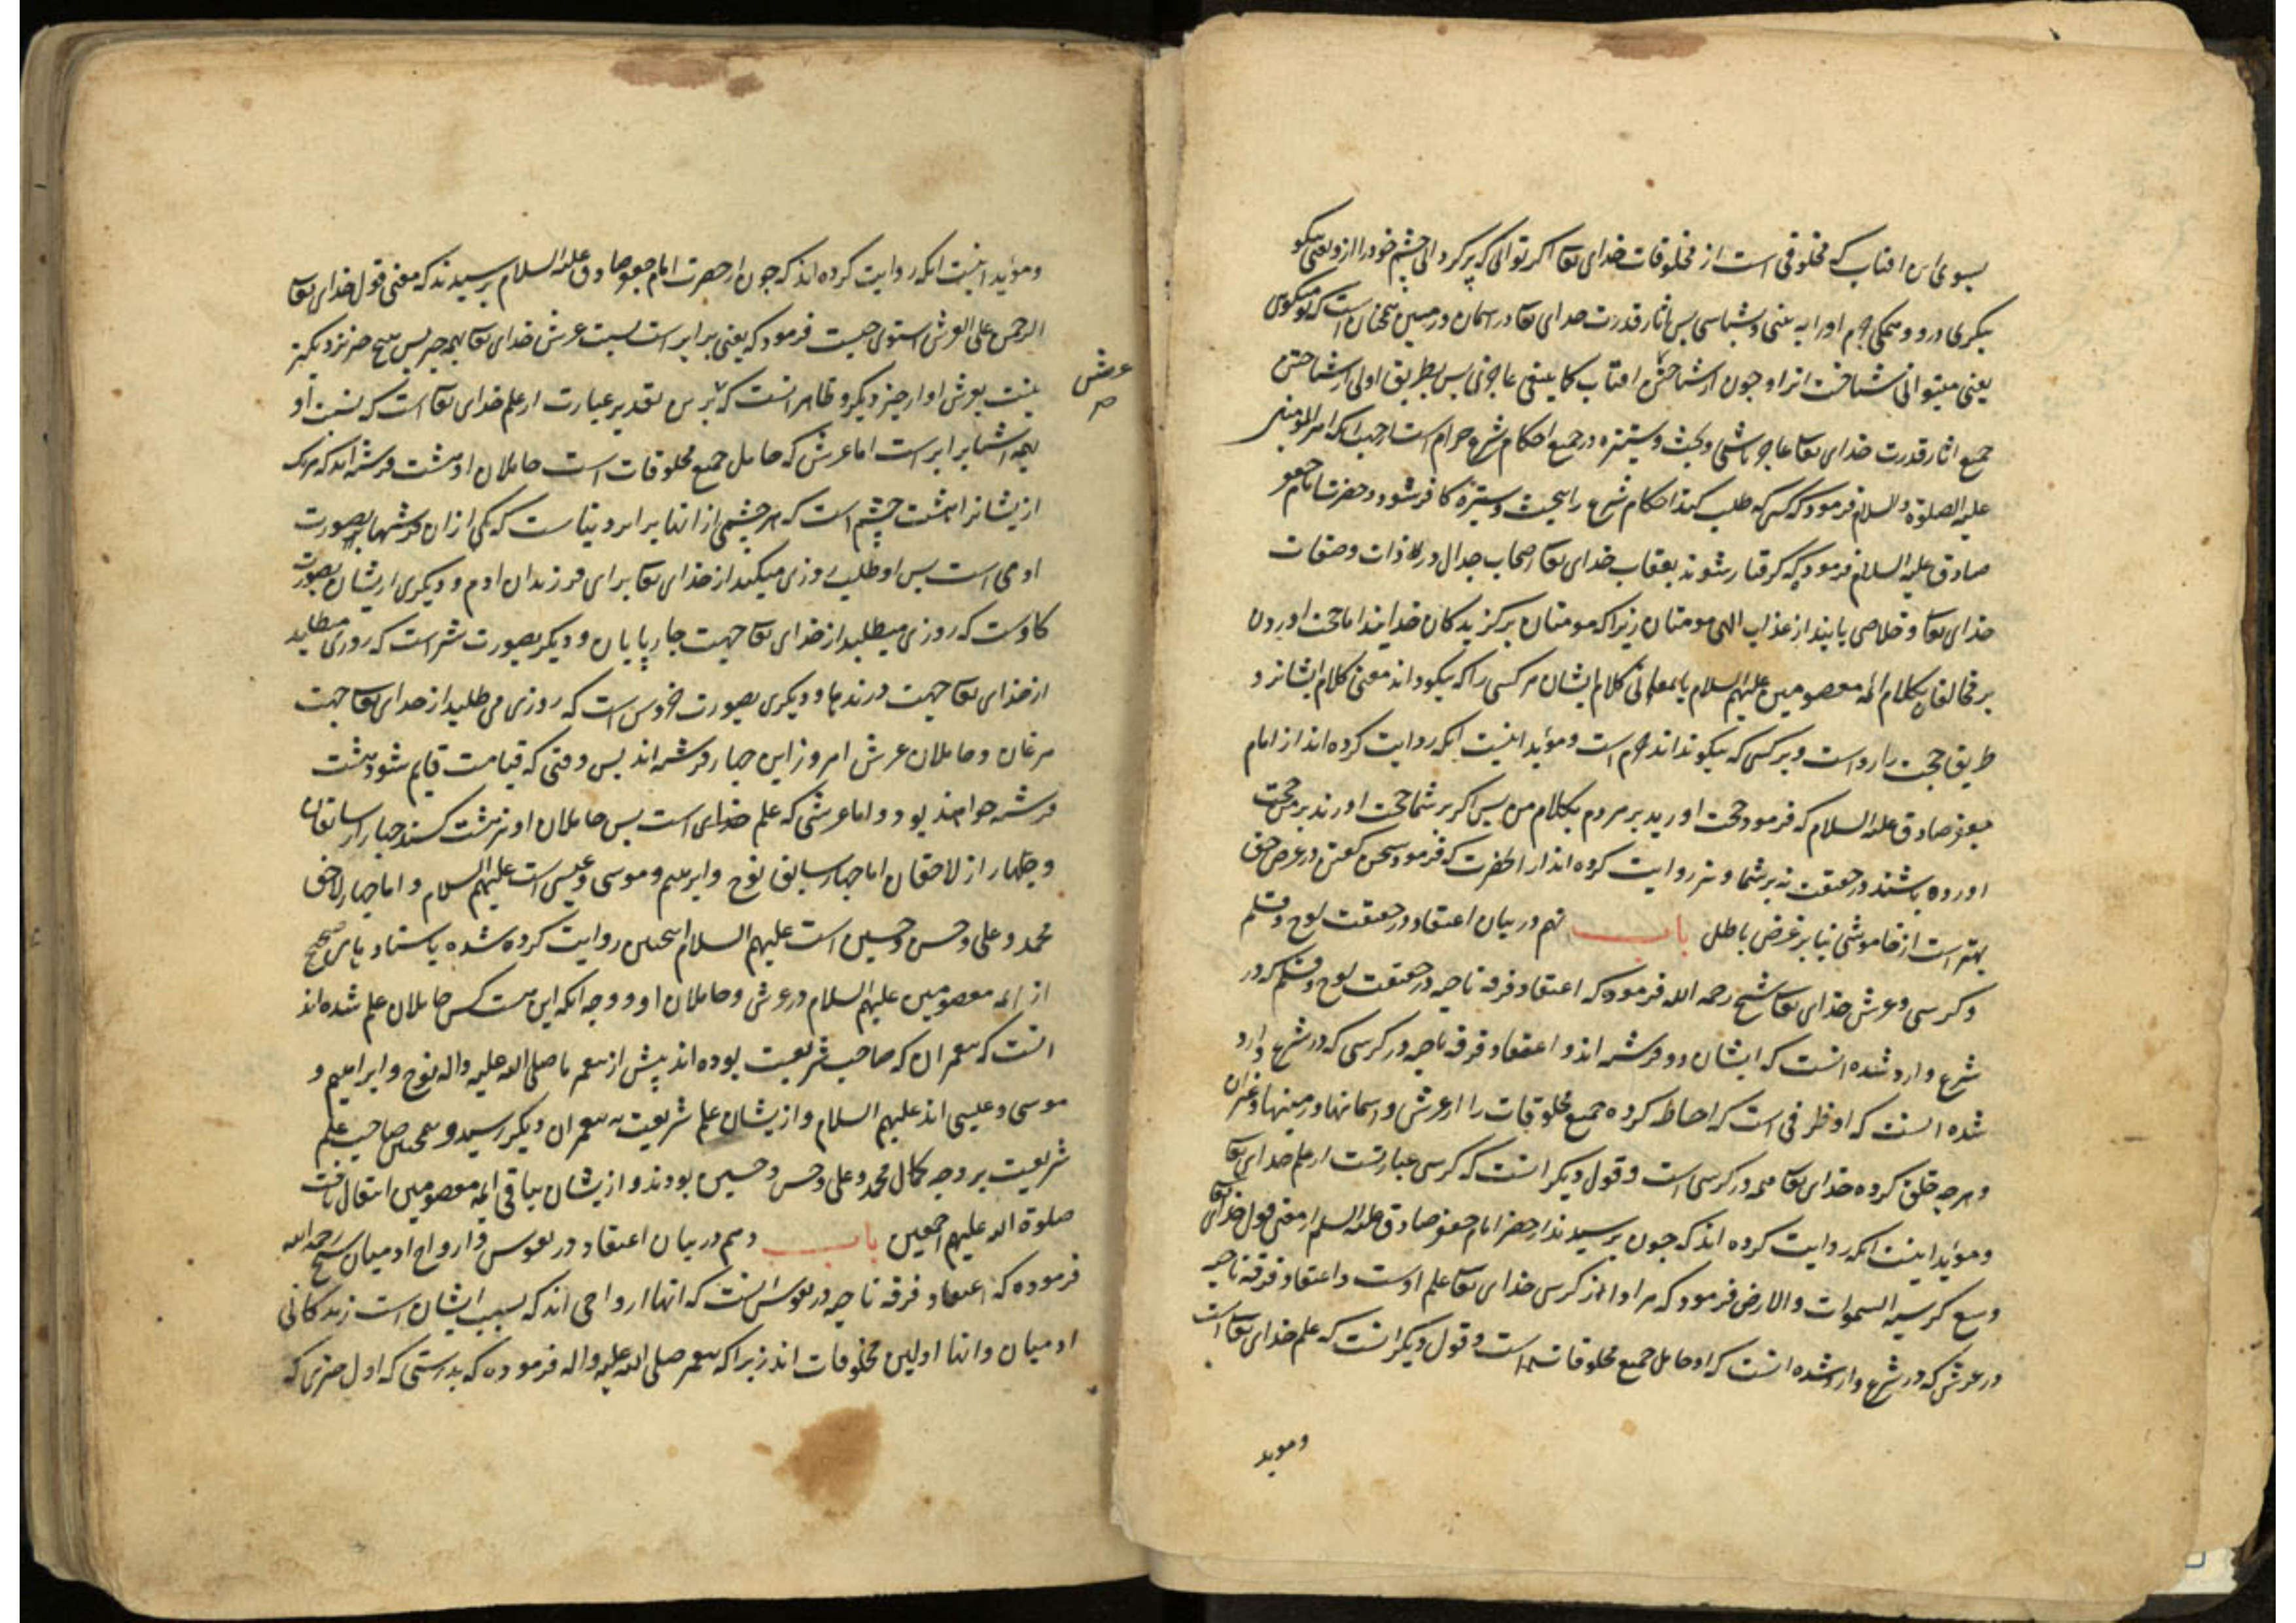 بسوی این افتاب که مخلوقی است از مخلوقات خدای تعا اگر توانی که پر کردانی چشم خود را ازو یعنی نیکو
بنگری درو و همکی جرم او را به بینی و بشناسی پس اثار قدرت خدای تعا در اسمان و زمین همچنان است که تو میکوئی
یعنی میتوانی شناخت انرا و چون از شناختن افتاب کما ینبغی عاجزی پس بطریق اولی از شناختن
جمیع اثار قدرت خدای تعا عاجز باشی و بحث و ستیزه در جمیع احکام شرع حرام است از جهت انکه امیر المؤمنین
علیه الصلوة والسلام فرمود که کسی که طلب کند احکام شرع را ببحث و ستیزه کافر شود و حضرت امام جعفر
صادق علیه السلام فرمود که گرفتار شوند بعقاب خدای تعا اصحاب جدال در ذات و صفات
خدای تعا و خلاصی یابند از عذاب الهی مومنان زیرا که مومنان برکزیدکان خدایند اما حجت اوردن
بر مخالفان بکلام ائمه معصومین علیهم السلام یا بمعانی کلام ایشان مر کسی را که نیکو داند معنی کلام ایشانرا و
طریق حجت را رواست و بر کسی که نیکو نداند حرام است و مؤید اینست انکه روایت کرده اند از امام
جعفر صادق علیه السلام که فرمود حجت اورید بر مردم بکلام من پس اکر بر شما حجت اورند بر من حجت
اورده باشند در حقیقت نه بر شما و نیز روایت کرده اند از انحضرت که فرمود سخن کفتن در عرض حق
بهتر است از خاموشی نه بر غرض باطل باب نهم در بیان اعتقاد در حقیقت لوح و قلم
و کرسی و عرش خدای تعا شیخ رحمه الله فرموده که اعتقاد فرقه ناجیه در حقیقت لوح و قلم که در
شرع وارد شده انست که ایشان دو فرشته اند و اعتقاد فرقه ناجیه در کرسی که در شرع وارد
شده انست که او ظرفی است که احاطه کرده جمیع مخلوقات را از عرش و اسمانها و زمینها و غیران
و هرچه خلق کرده خدای تعا همه در کرسی است و قول دیکر انست که کرسی عبارتست از علم خدای تعا
و مؤید اینست انکه روایت کرده اند که چون پرسیدند از حضرت امام جعفر صادق علیه السلام از معنی قول خدای تعا
وسع کرسیه السموات والارض فرمود که مراد از کرسی خدای تعا علم اوست و اعتقاد فرقه ناجیه
در عرش که در شرع وارد شده انست که او حامل جمیع مخلوقات است و قول دیکر انست که علم خدای تعا است
و موید
و مؤید اینست انکه روایت کرده اند که چون از حضرت امام جعفر صادق علیه السلام پرسیدند که معنی قول خدای تعا
الرحمن علی العرش استوی چیست فرمود که یعنی برابر است نسبت عرش خدای تعا بهمه چیز پس هیچ چیز نزدیکتر
نیست بعرش او از چیز دیکر و ظاهر انست که عرش برین تقدیر عبارت از علم خدای تعا است که نسبت او
عرش
بهمه اشیا برابر است اما عرش که حامل جمیع مخلوقات است حاملان او هشت فرشته اند که هریک
ازیشانرا هشت چشم است که هر چشمی از انها برابر دنیاست که یکی از ان فرشتها بصورت
ادمی است پس او طلب روزی میکند از خدای تعا برای فرزندان ادم و دیکری ازیشان بصورت
کاوست که روزی میطلبد از خدای تعا جهت چارپایان و دیکر بصورت شیر است که روزی میطلبد
از خدای تعا جهت درندها و دیکری بصورت خروس است که روزی می طلبد از خدای تعا جهت
مرغان و حاملان عرش امروز این چهار فرشته اند پس وقتی که قیامت قایم شود هشت
فرشته خواهند بود و اما عرشی که علم خدای است پس حاملان او نیز هشت کسند چهار از سابقان
و چهار از لاحقان اما چهار سابق نوح و ابرهیم و موسی و عیسی است علیهم السلام و اما چهار لاحق
محمد و علی و حسن و حسین است علیهم السلام اینچنین روایت کرده شده باسنادهای صحیح
از ائمه معصومین علیهم السلام در عرش و حاملان او و وجه انکه این هشت کس حاملان علم شده اند
انست که پیغمبران که صاحب شریعت بوده اند پیش از پیغمبر ما صلی الله علیه واله نوح و ابراهیم و
موسی و عیسی اند علیهم السلام و ازیشان علم شریعت به پیغمبران دیکر رسید و همچنین صاحب علم
شریعت بر وجه کمال محمد و علی و حسن و حسین بودند و ازیشان بباقی ائمه معصومین انتقال یافت
صلوة الله علیهم اجمعین باب دهم در بیان اعتقاد در نفوس و ارواح ادمیان شیخ رحمه الله
فرموده که اعتقاد فرقه ناجیه در نفوس انست که انها ارواحی اند که بسبب ایشان است زندکانی
ادمیان و انها اولین مخلوقات اند زیرا که پیغمبر صلی الله علیه واله فرموده که بدرستی که اول چیزی که